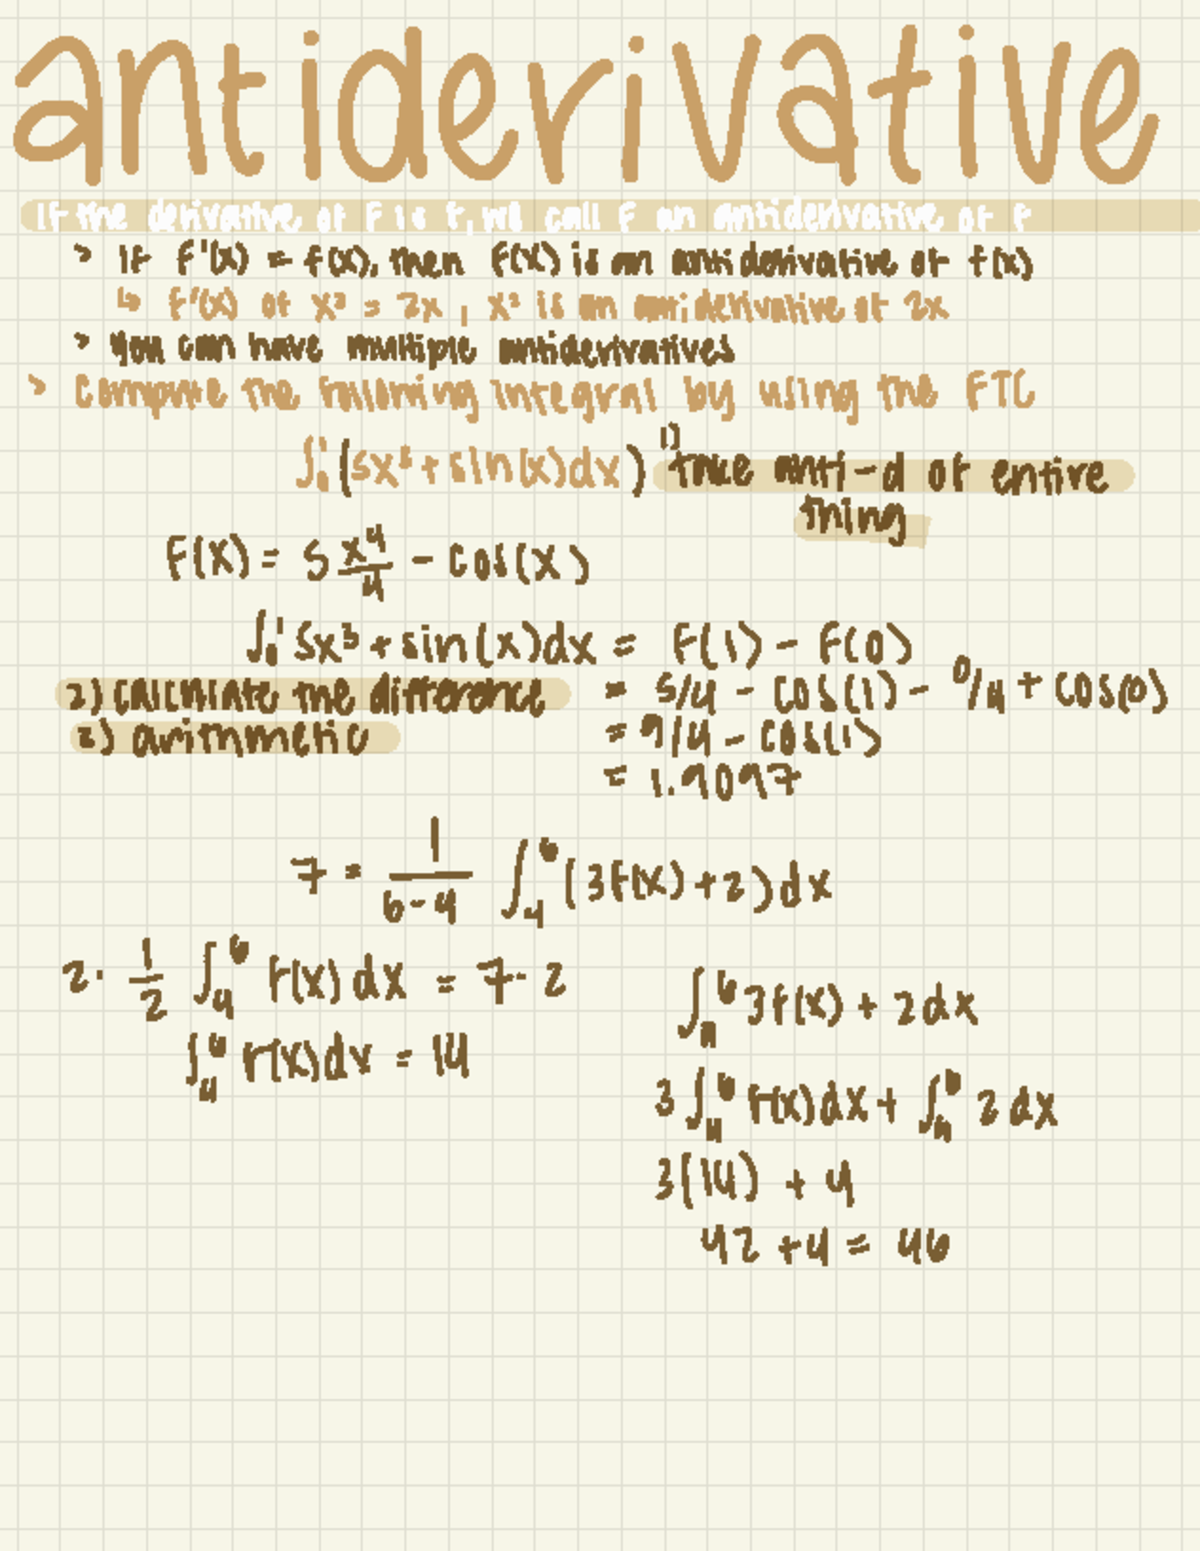 antiderivative
If the derivative of F is f, we call F an antiderivative of f
> If F'(x) = f(x), then F(x) is an antiderivative of f(x)
↳ F'(x) of x² = 2x, x² is an antiderivative of 2x
> you can have multiple antiderivatives
> compute the following integral by using the FTC
∫₀¹ (5x³ + sin(x)dx) 1) take anti-d of entire
thing
F(x) = 5 x⁴/4 - cos(x)
∫₀¹ 5x³ + sin(x)dx = F(1) - F(0)
2) calculate the difference = 5/4 - cos(1) - 0/4 + cos(0)
3) arithmetic = 9/4 - cos(1)
= 1.9097
7 = 1/(6-4) ∫₄⁶ (3f(x) + 2)dx
2 · 1/2 ∫₄⁶ f(x) dx = 7 · 2
∫₄⁶ f(x)dx = 14
∫₄⁶ 3f(x) + 2dx
3 ∫₄⁶ f(x)dx + ∫₄⁶ 2 dx
3(14) + 4
42 + 4 = 46